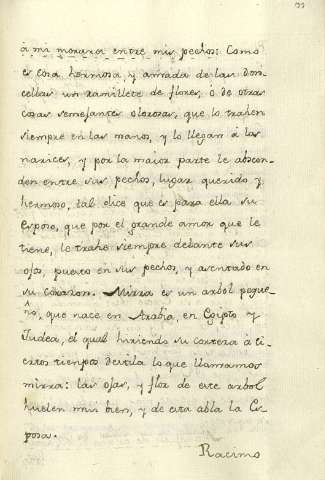 á mi morara entre mis pechos: Como
es cosa hermosa, y amada de las don-
cellas un ramillete de flores, ó de otras
cosas semejantes olorosas, que lo trahen
siempre en las manos, y lo llegan á las
narices, y por la maior parte le abscon-
den entre sus pechos, lugar querido y
hermoso, tal dice que es para ella su
Esposo, que por el grande amor que le
tiene, lo trahe siempre delante sus
ojos, puesto en sus pechos, y asentado en
su corazon. Mirra es un arbol peque-
ño, que nace en Arabia, en Egipto y
Judea, el qual hiriendo su corteza á ci-
ertos tiempos destila lo que llamamos
mirra: las ojas, y flor de este arbol
huelen mui bien, y de esta abla la Es-
posa.
Racimo